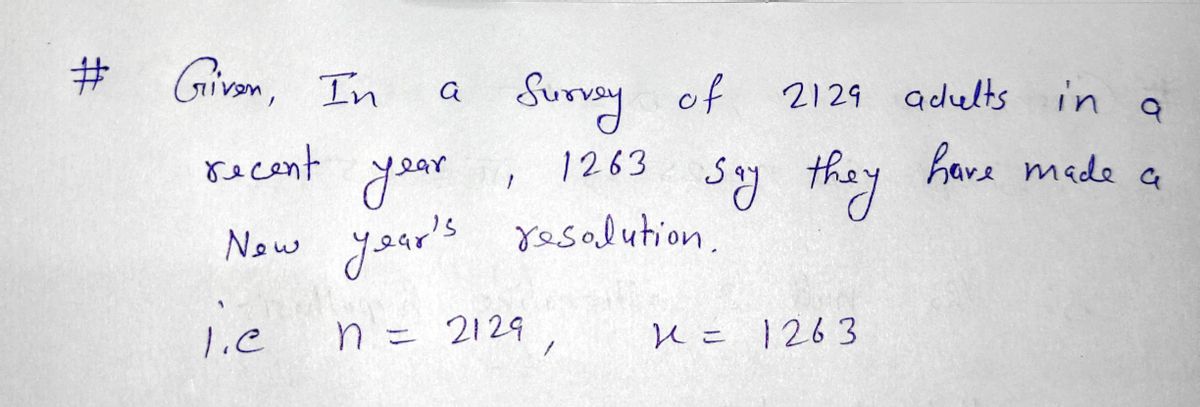 # Given, In a Survey of 2129 adults in a
recent year, 1263 say they have made a
New year's resolution.
i.e n = 2129, x = 1263